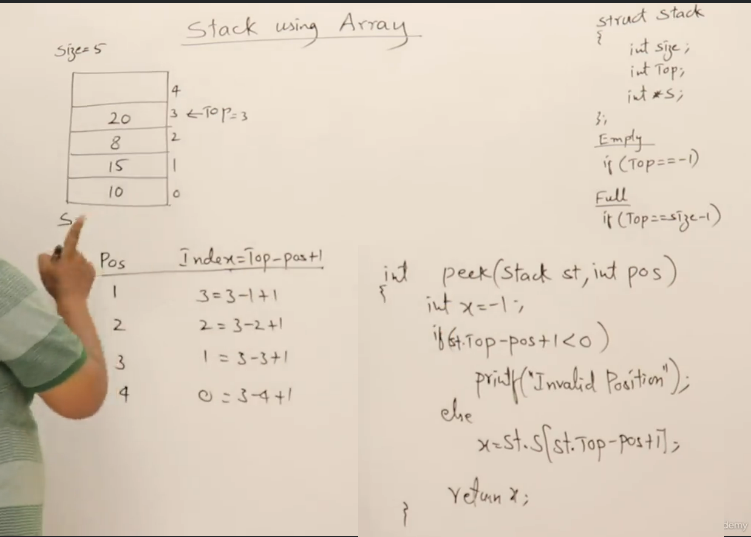 Stack using Array
Size=5
4
20 3 ←Top=3
8 2
15 1
10 0
S
Pos Index=Top-pos+1
1 3=3-1+1
2 2=3-2+1
3 1=3-3+1
4 0=3-4+1
struct Stack
{
int size;
int Top;
int *S;
};
Empty
if(Top==-1)
Full
if(Top==size-1)
int peek(Stack st, int pos)
{
int x=-1;
if(st.Top-pos+1<0)
printf("Invalid Position");
else
x=st.S[st.Top-pos+1];
return x;
}
demy